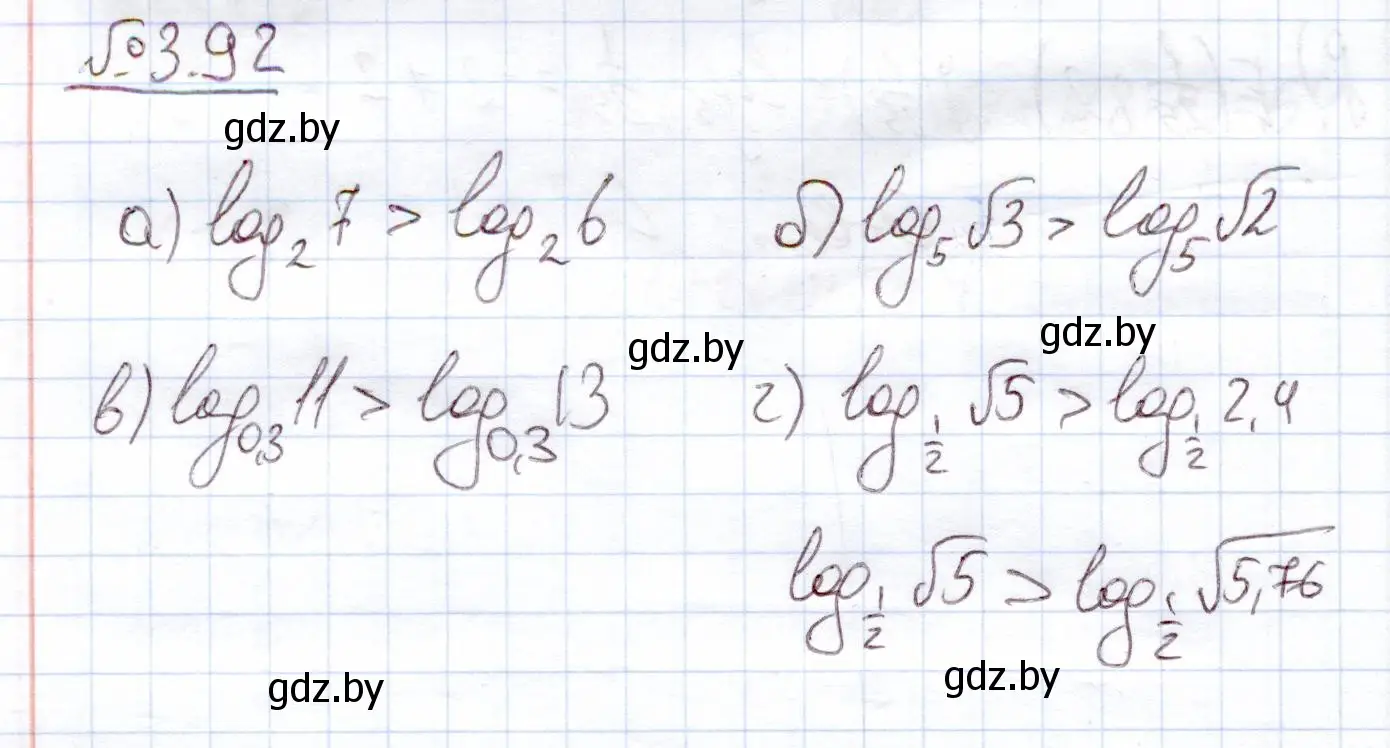 № 3.92
gdz.by
а) log₂ 7 > log₂ 6 б) log₅ √3 > log₅ √2
gdz.by gdz.by
в) log₀,₃ 11 > log₀,₃ 13 г) log_{1/2} √5 > log_{1/2} 2,4
log_{1/2} √5 > log_{1/2} √5,76
gdz.by gdz.by